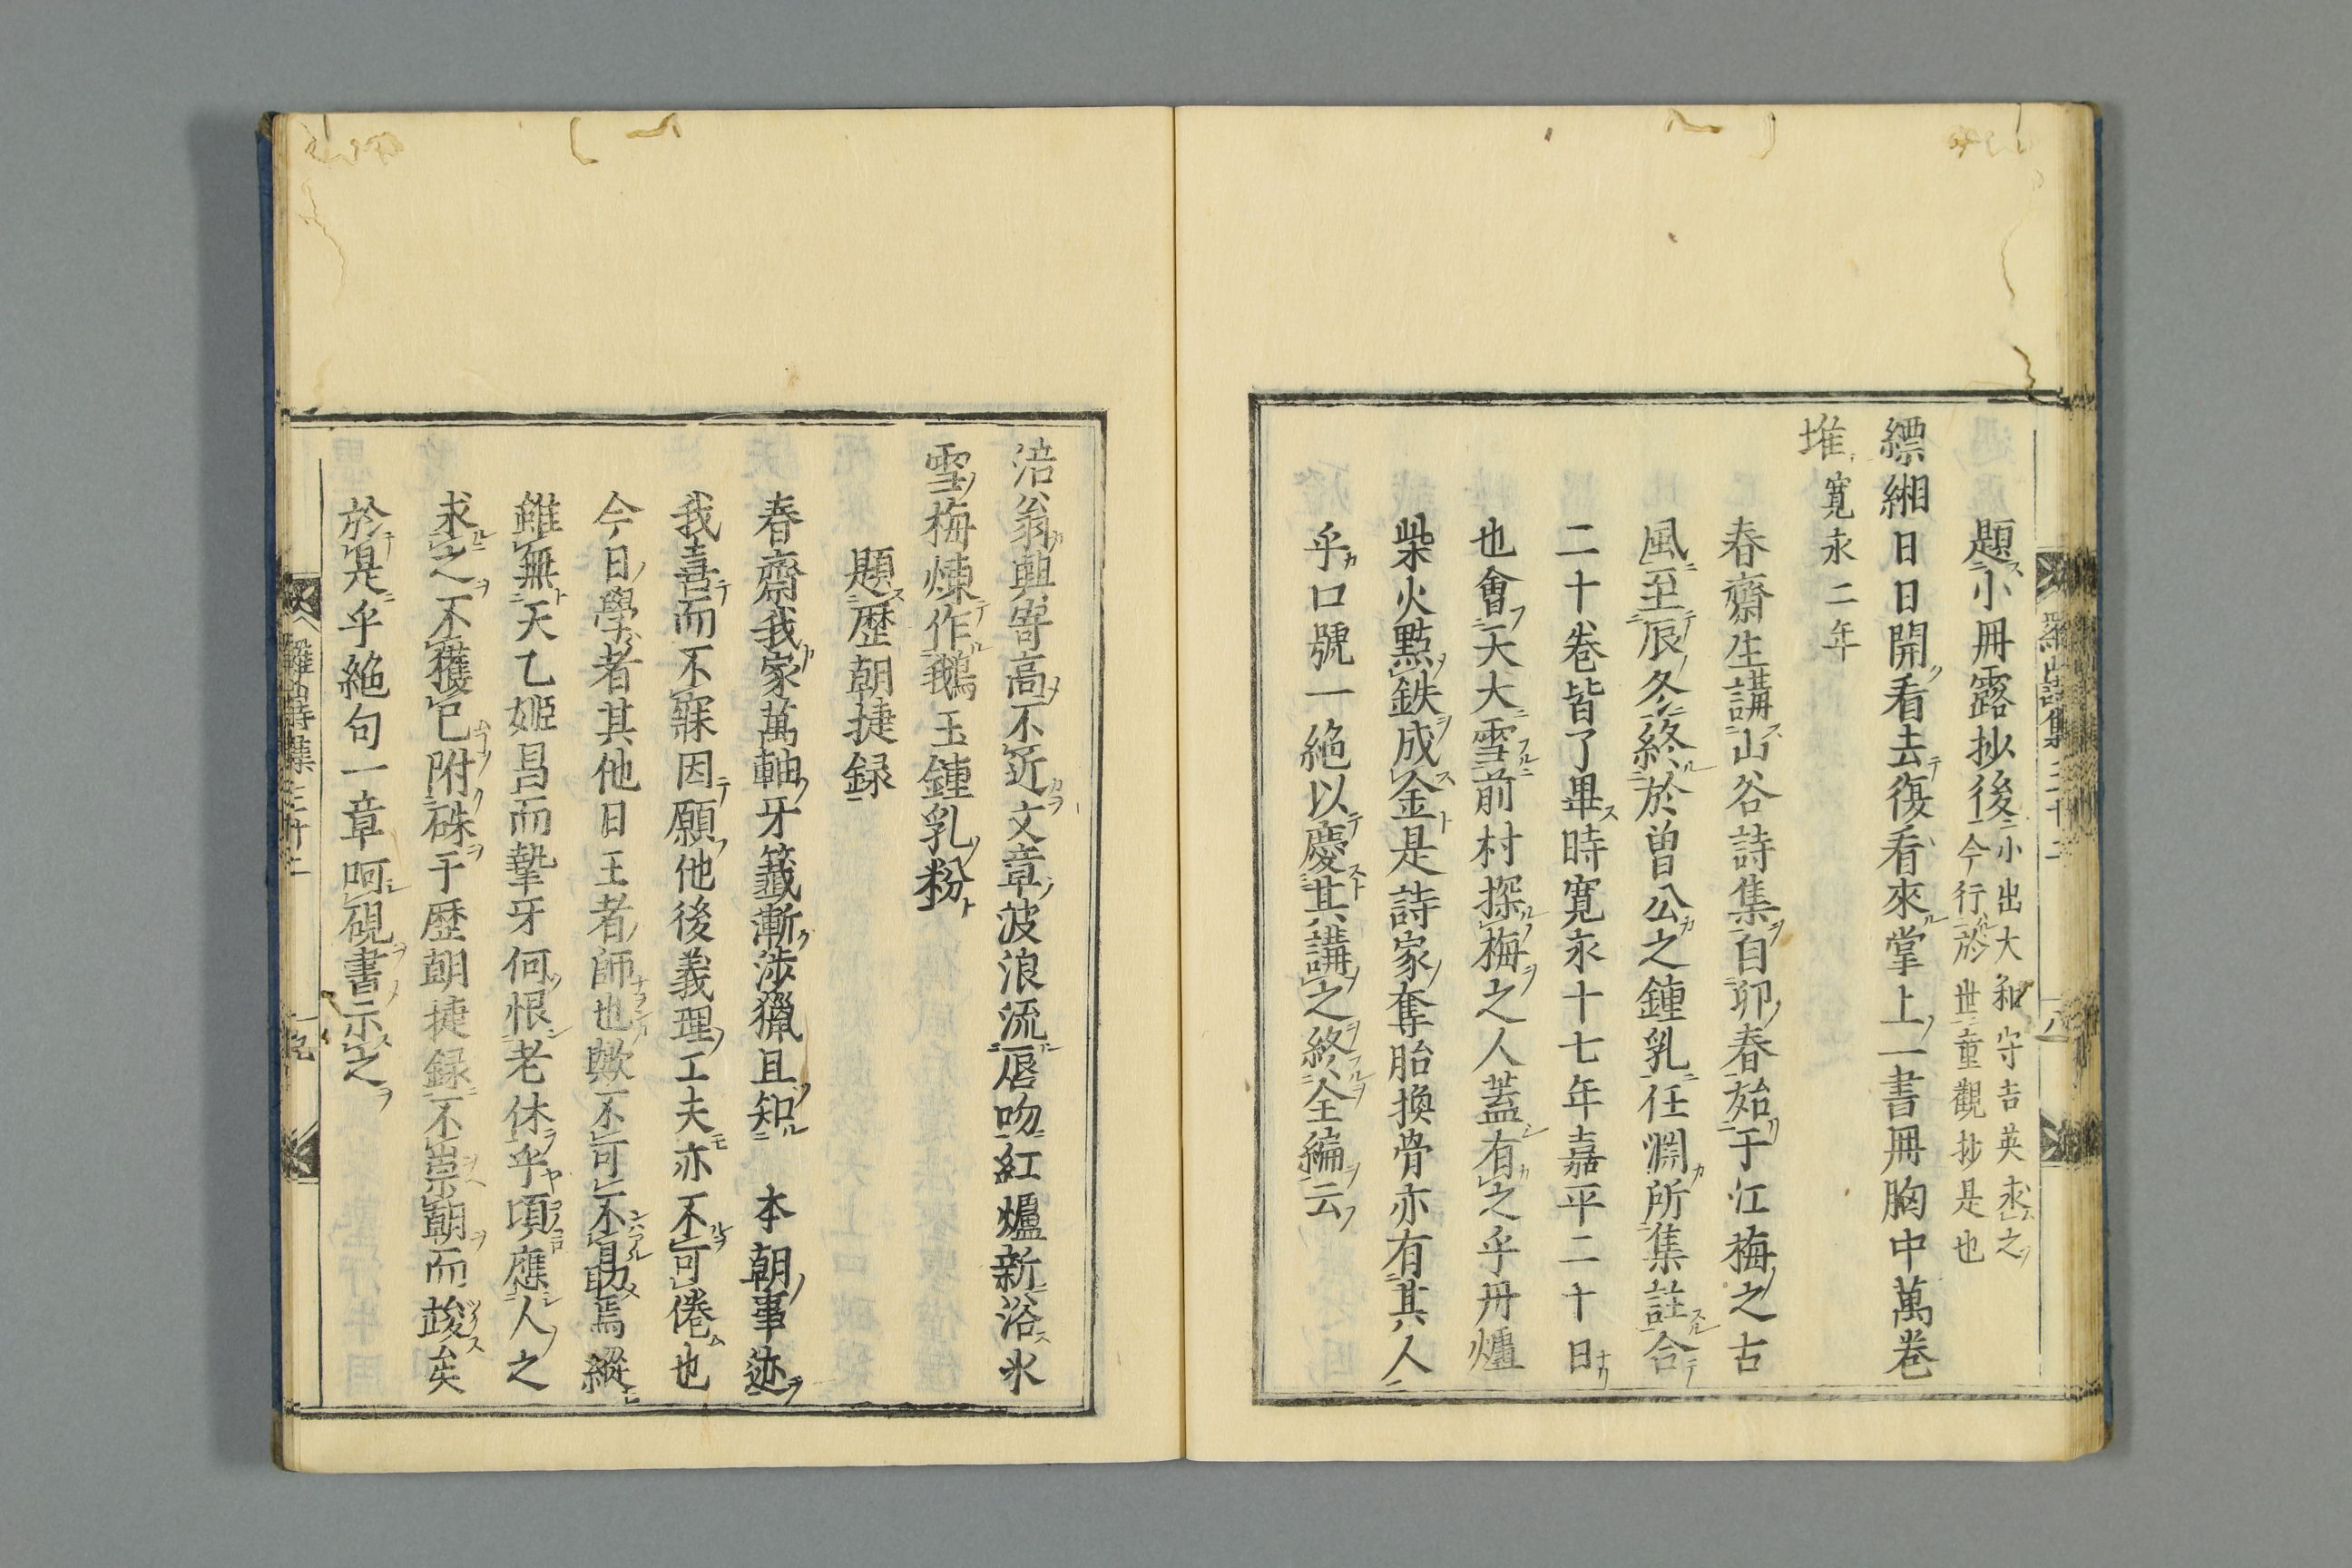 題小冊露抄後
小出大和守吉英求之
今行於世童觀抄是也
縹緗日日開看去復看來掌上一書冊胸中萬卷
堆 寛永二年
春齋生講山谷詩集自卯春始于江梅之古
風至辰冬終於曽公之鍾乳任淵所集註合
二十卷皆了畢時寛永十七年嘉平二十日
也會天大雪前村探梅之人蓋有之乎丹爐
柴火點鉄成金是詩家奪胎換骨亦有其人
乎口號一絶以慶其講之終全編云
涪翁興寄高不近文章波浪流唇吻紅爐新浴氷
雪梅煉作鵝玉鍾乳粉
題歴朝捷録
春齋我家萬軸牙籤漸涉獵且知 本朝事迹
我喜而不寐因願他後義理工夫亦不可倦也
今日學者其他日王者師也歟不可不勗焉縱
雖無天乙姫昌而摯牙何恨老休乎頃應人之
求之不獲已附硃于歴朝捷録不崇朝而竣矣
於是乎絶句一章呵硯書示之